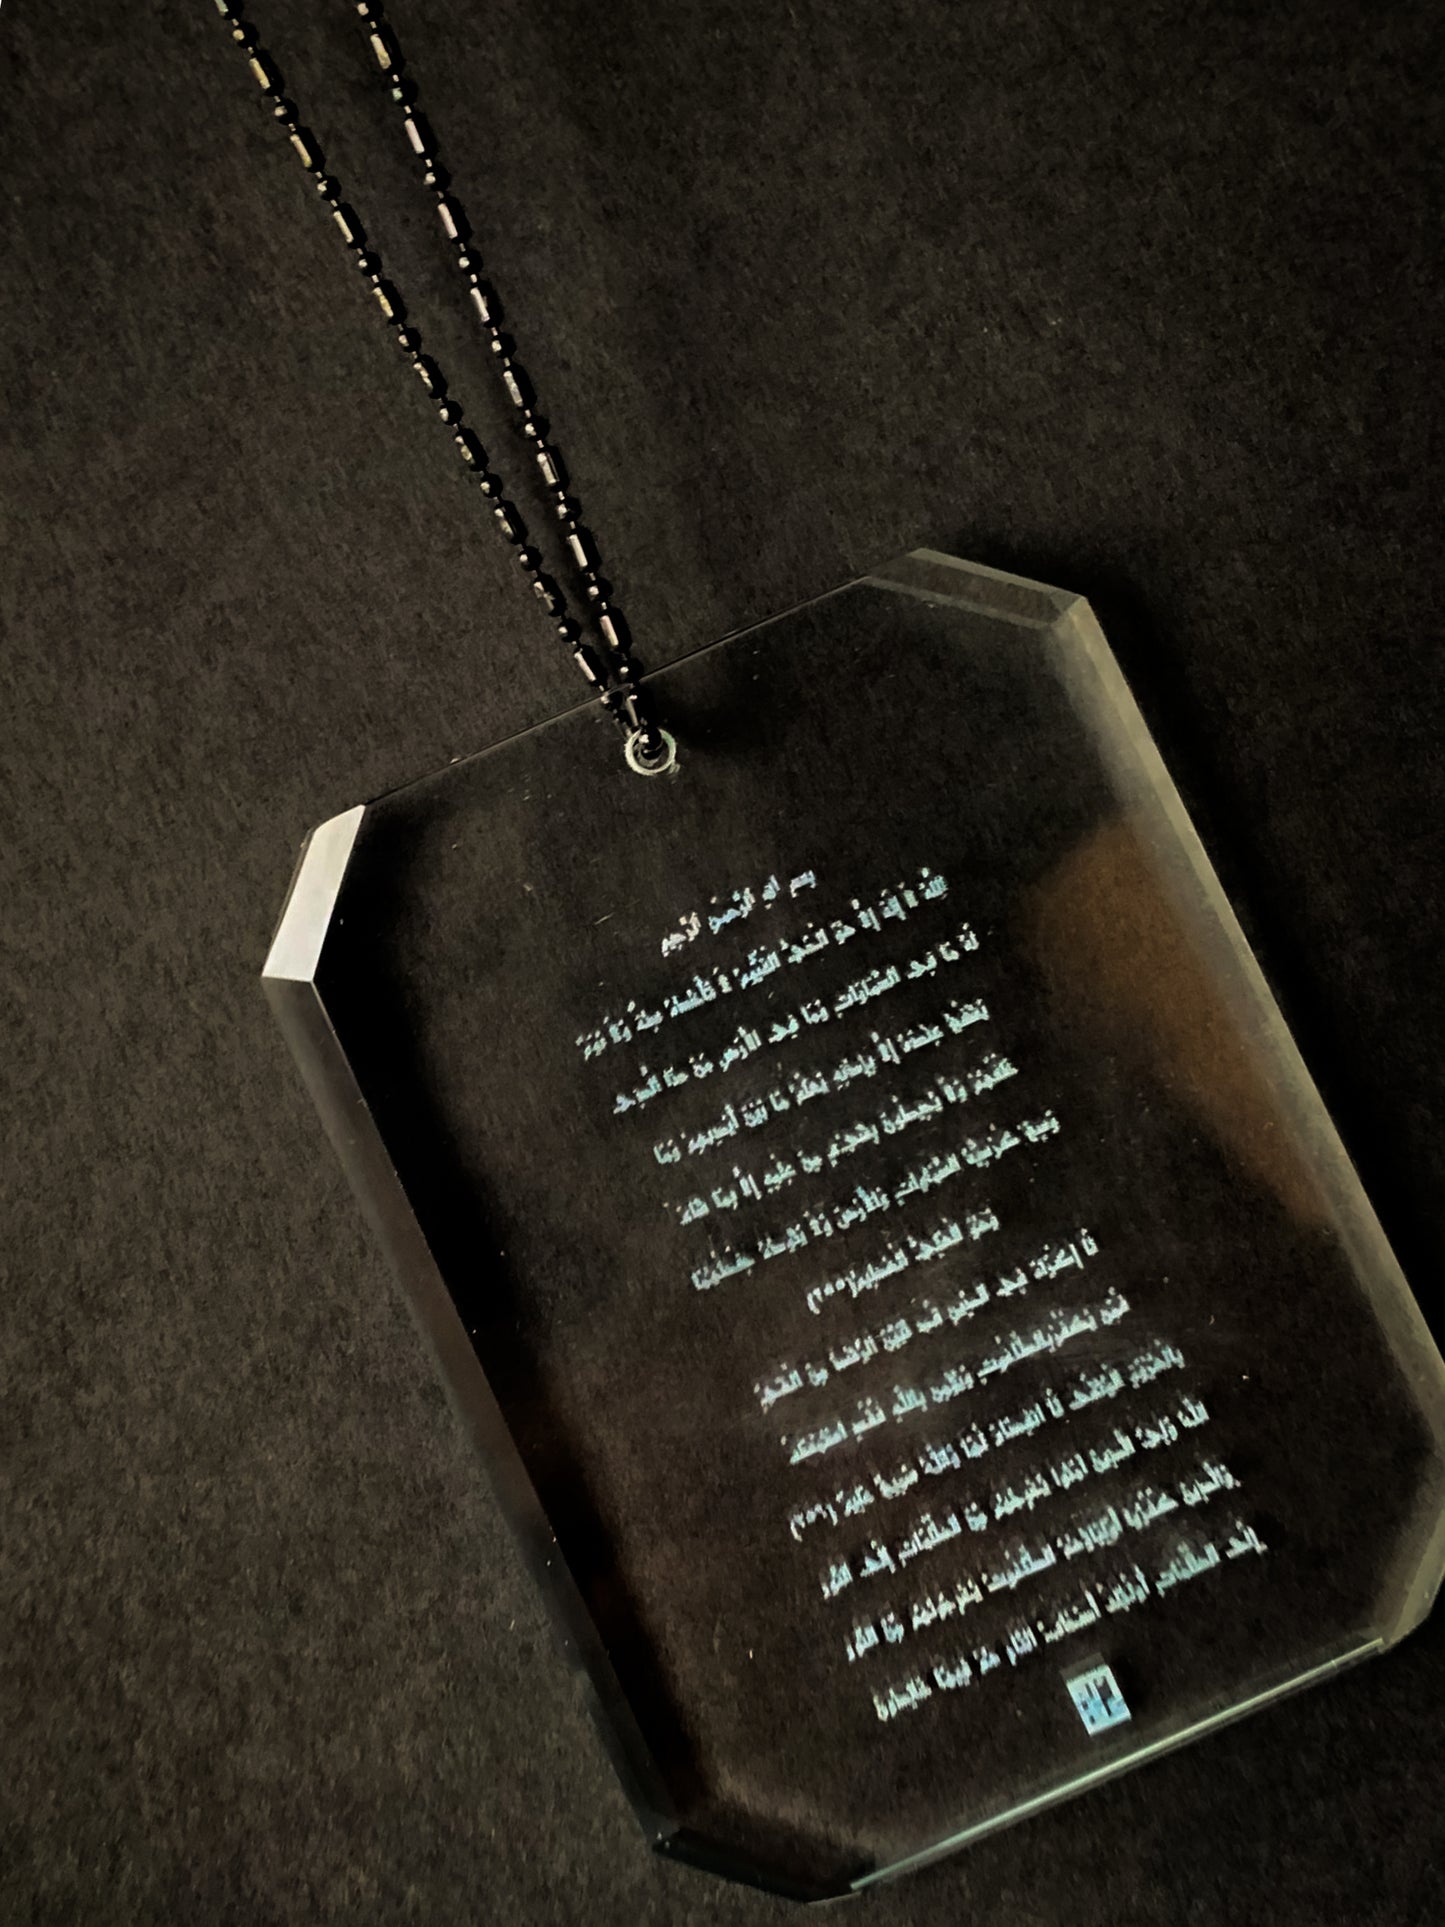 بسم الله الرحمن الرحيم
اللَّهُ لَا إِلَهَ إِلَّا هُوَ الْحَيُّ الْقَيُّومُ لَا تَأْخُذُهُ سِنَةٌ وَلَا نَوْمٌ
لَهُ مَا فِي السَّمَاوَاتِ وَمَا فِي الْأَرْضِ مَنْ ذَا الَّذِي
يَشْفَعُ عِنْدَهُ إِلَّا بِإِذْنِهِ يَعْلَمُ مَا بَيْنَ أَيْدِيهِمْ وَمَا
خَلْفَهُمْ وَلَا يُحِيطُونَ بِشَيْءٍ مِنْ عِلْمِهِ إِلَّا بِمَا شَاءَ
وَسِعَ كُرْسِيُّهُ السَّمَاوَاتِ وَالْأَرْضَ وَلَا يَئُودُهُ حِفْظُهُمَا
وَهُوَ الْعَلِيُّ الْعَظِيمُ(٢٥٥)
لَا إِكْرَاهَ فِي الدِّينِ قَدْ تَبَيَّنَ الرُّشْدُ مِنَ الْغَيِّ
فَمَنْ يَكْفُرْ بِالطَّاغُوتِ وَيُؤْمِنْ بِاللَّهِ فَقَدِ اسْتَمْسَكَ
بِالْعُرْوَةِ الْوُثْقَى لَا انْفِصَامَ لَهَا وَاللَّهُ سَمِيعٌ عَلِيمٌ (٢٥٦)
اللَّهُ وَلِيُّ الَّذِينَ آمَنُوا يُخْرِجُهُمْ مِنَ الظُّلُمَاتِ إِلَى النُّورِ
وَالَّذِينَ كَفَرُوا أَوْلِيَاؤُهُمُ الطَّاغُوتُ يُخْرِجُونَهُمْ مِنَ النُّورِ
إِلَى الظُّلُمَاتِ أُولَئِكَ أَصْحَابُ النَّارِ هُمْ فِيهَا خَالِدُونَ